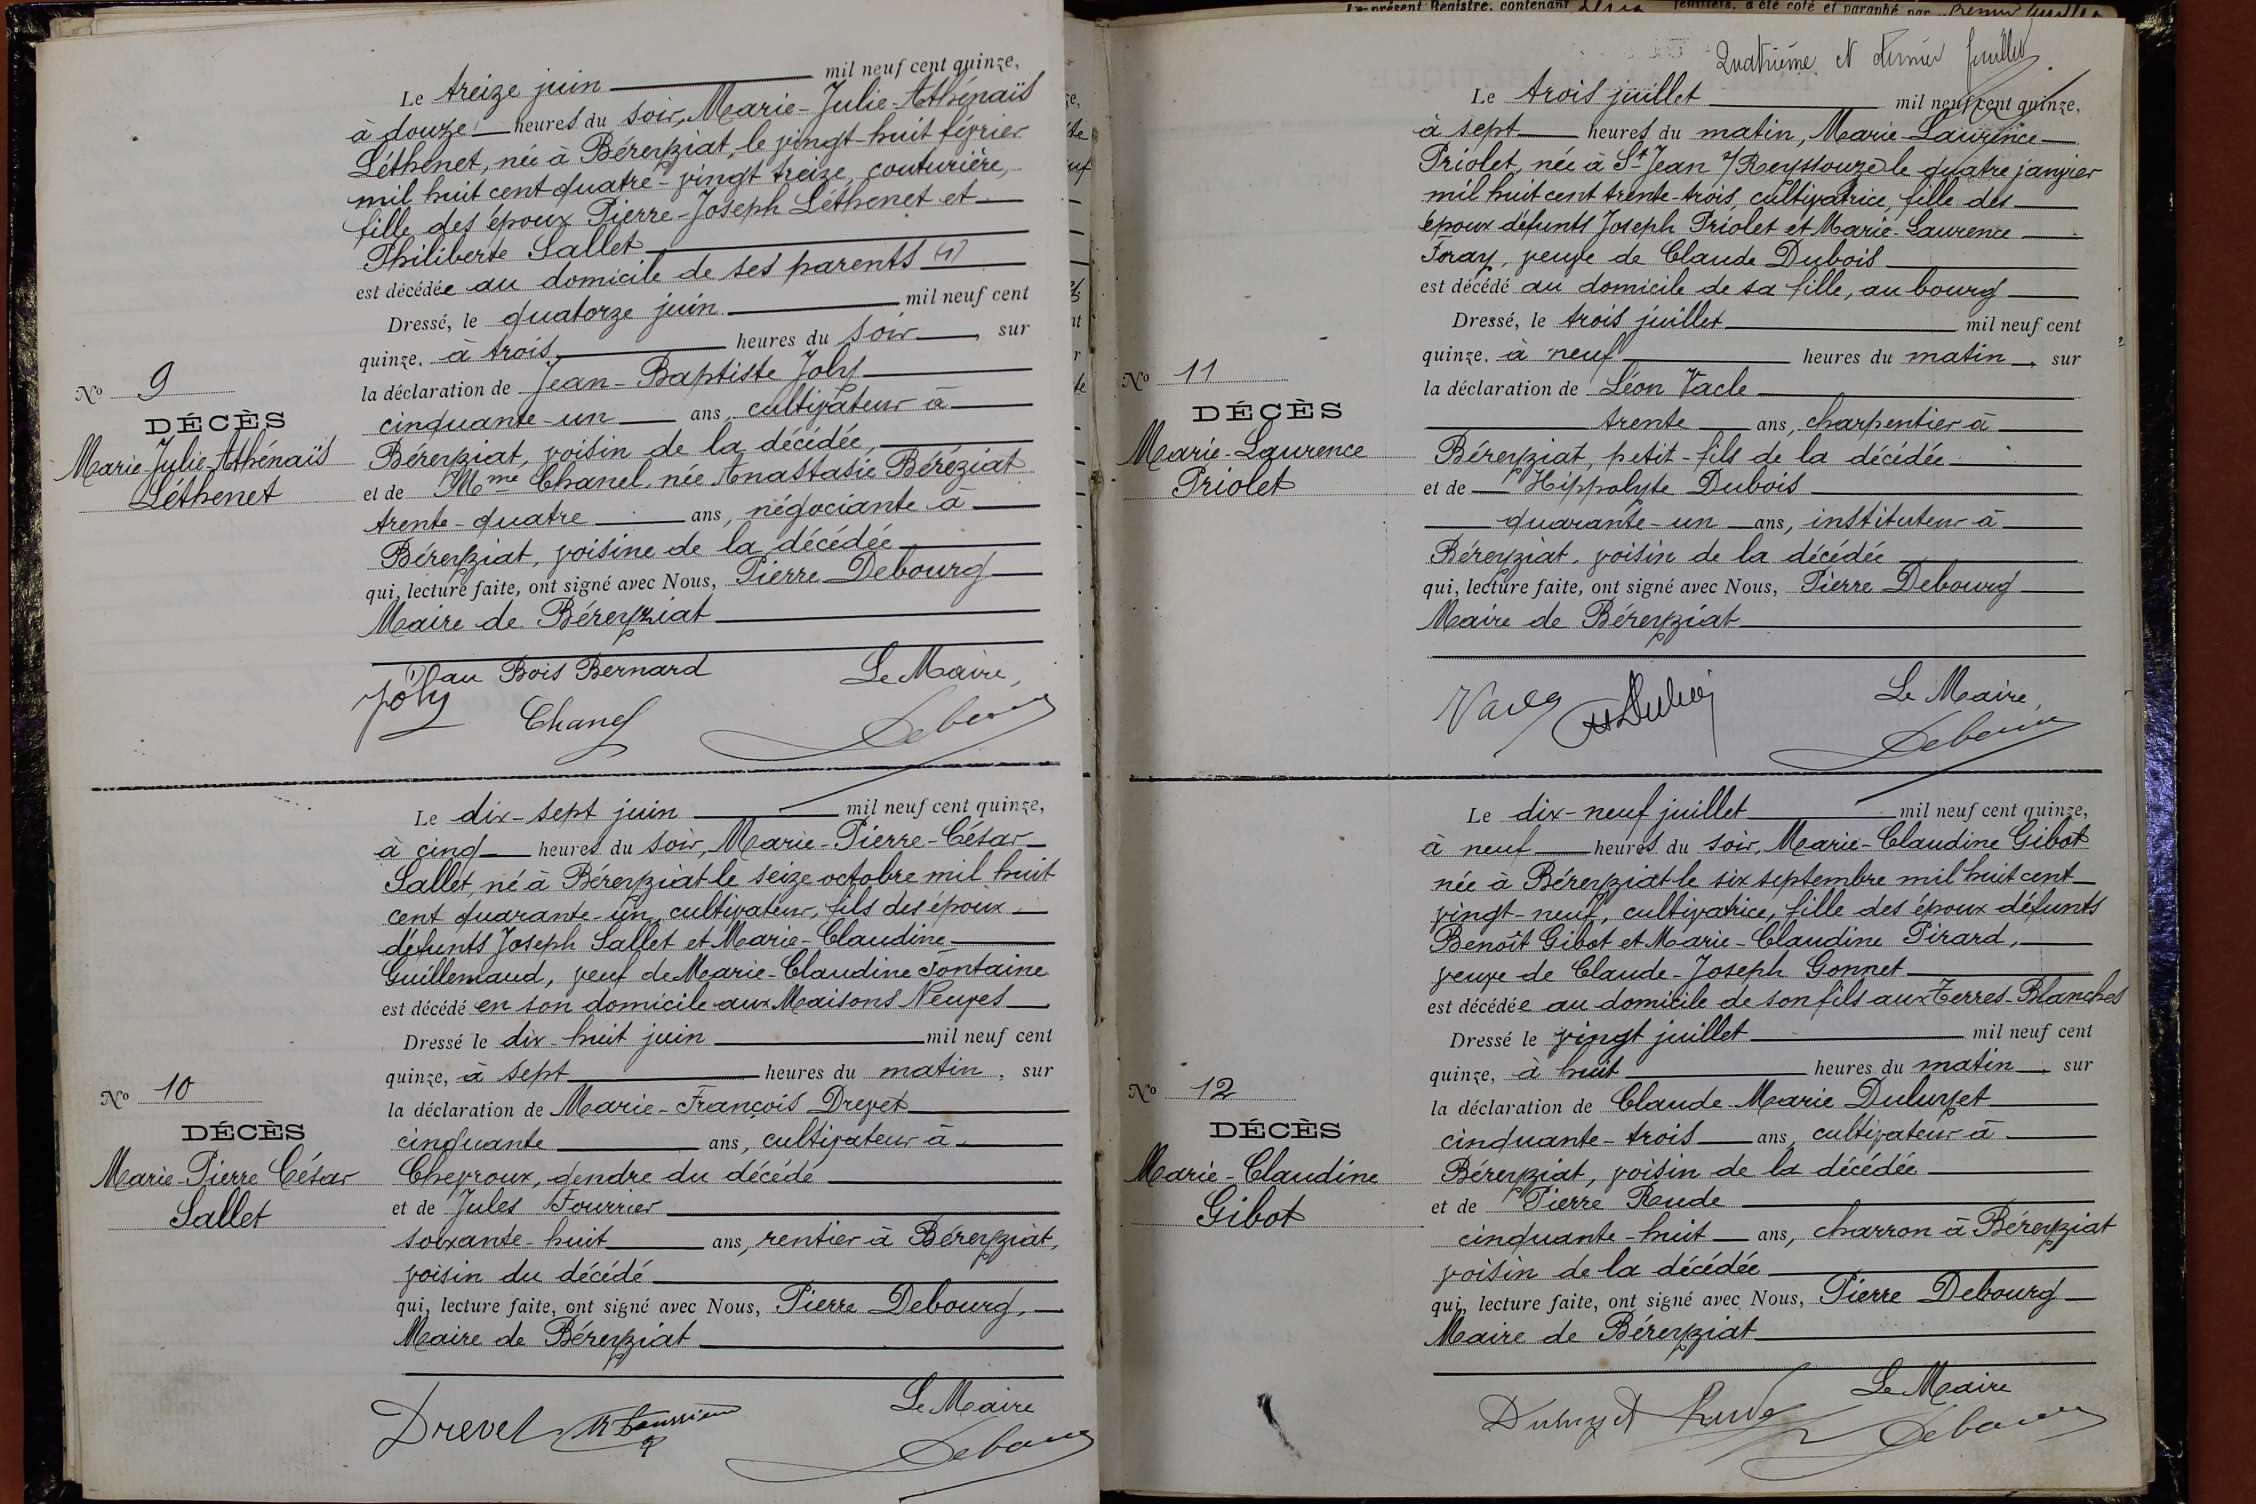 Le treize juin mil neuf cent quinze,
à douze heures du soir, Marie-Julie-Athénaïs
Léthenet, née à Béreyziat, le vingt-huit février
mil huit cent quatre-vingt treize, couturière,
fille des époux Pierre-Joseph Léthenet et
Philiberte Sallet
est décédée au domicile de ses parents (1)
Dressé, le quatorze juin mil neuf cent
quinze, à trois heures du soir, sur
la déclaration de Jean-Baptiste Joly
cinquante-un ans, cultivateur à
Béreyziat, voisin de la décédée,
et de Mme Chanel, née Anastasie Béréziat
trente-quatre ans, négociante à
Béreyziat, voisine de la décédée
qui, lecture faite, ont signé avec Nous, Pierre Debourg
Maire de Béreyziat
(1) au Bois Bernard Le Maire,
Joly Chanel Debourg
No 9
DÉCÈS
Marie Julie Athénaïs
Léthenet
Le dix-sept juin mil neuf cent quinze,
à cinq heures du soir, Marie-Pierre-César
Sallet, né à Béreyziat le seize octobre mil huit
cent quarante-un, cultivateur, fils des époux
défunts Joseph Sallet et Marie-Claudine
Guillemaud, veuf de Marie-Claudine Fontaine
est décédé en son domicile aux Maisons Neuves
Dressé le dix-huit juin mil neuf cent
quinze, à sept heures du matin, sur
la déclaration de Marie-François Drevet
cinquante ans, cultivateur à
Chevroux, gendre du décédé
et de Jules Fourrier
soixante-huit ans, rentier à Béreyziat,
voisin du décédé
qui, lecture faite, ont signé avec Nous, Pierre Debourg,
Maire de Béreyziat
Le Maire
Drevet Debourg
No 10
DÉCÈS
Marie-Pierre César
Sallet
Le présent Registre, contenant feuillets, a été coté et paraphé par
Quatrième et dernier feuillet
Le trois juillet mil neuf cent quinze,
à sept heures du matin, Marie-Laurence
Priolet, née à St Jean s/Reyssouze le quatre janvier
mil huit cent trente-trois, cultivatrice, fille des
époux défunts Joseph Priolet et Marie-Laurence
Foray, veuve de Claude Dubois
est décédé au domicile de sa fille, au bourg
Dressé, le trois juillet mil neuf cent
quinze, à neuf heures du matin, sur
la déclaration de Léon Vacle
trente ans, charpentier à
Béreyziat, petit-fils de la décédée
et de Hippolyte Dubois
quarante-un ans, instituteur à
Béreyziat, voisin de la décédée
qui, lecture faite, ont signé avec Nous, Pierre Debourg
Maire de Béreyziat
Le Maire,
Vacle HDubois Debourg
No 11
DÉCÈS
Marie-Laurence
Priolet
Le dix-neuf juillet mil neuf cent quinze,
à neuf heures du soir, Marie-Claudine Gibot
née à Béreyziat le six septembre mil huit cent
vingt-neuf, cultivatrice, fille des époux défunts
Benoît Gibot et Marie-Claudine Pirard,
veuve de Claude-Joseph Gonnet
est décédée au domicile de son fils aux Terres-Blanches
Dressé le vingt juillet mil neuf cent
quinze, à huit heures du matin, sur
la déclaration de Claude-Marie Duluyet
cinquante-trois ans, cultivateur à
Béreyziat, voisin de la décédée
et de Pierre Rude
cinquante-huit ans, charron à Béreyziat
voisin de la décédée
qui, lecture faite, ont signé avec Nous, Pierre Debourg
Maire de Béreyziat
Le Maire
Duluyet Rude Debourg
No 12
DÉCÈS
Marie-Claudine
Gibot